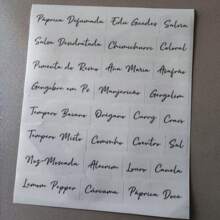 Páprica Defumada Edu Guedes Salvia
Salsa Desidratada Chimichurri Coloral
Pimenta do Reino Ana Maria Açafrão
Gengibre em Pó Manjericão Gergelim
Tempero Baiano Orégano Curry Cravo
Tempero Misto Cominho Coentro Sal
Noz-Moscada Alecrim Louro Canela
Lemon Pepper Cúrcuma Páprica Doce